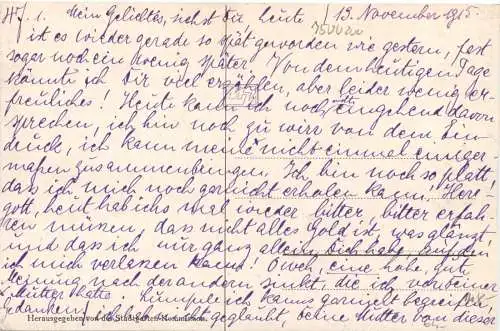 H7/1. Mein Geliebtes, siehst Du heute 13. November 1915
ist es wieder gerade so spät geworden wie gestern, fast
sogar noch ein wenig später. Von dem heutigen Tage
könnte ich Dir viel erzählen, aber leider wenig er-
freuliches! Heute kann ich noch nicht eingehend davon
sprechen, ich bin noch zu wirr von dem Ein-
druck, ich kann meine nicht einmal einiger-
maßen zusammenbringen. Ich bin noch so platt,
dass ich mich noch garnicht erholen kann! Herr-
gott, heut hab ichs mal wieder bitter, bitter erfah-
ren müssen, dass nicht alles Gold ist, was glänzt
und dass ich nur ganz allein Dich habe auf den
ich mich verlassen kann! O weh, eine hohe, gute
Meinung nach der andern sinkt, die ich von einer
Mutter hatte ich kanns garnicht begreifen
Gedanken, ich hätte nicht geglaubt, deine Mutter von dieser
Herausgegeben von der